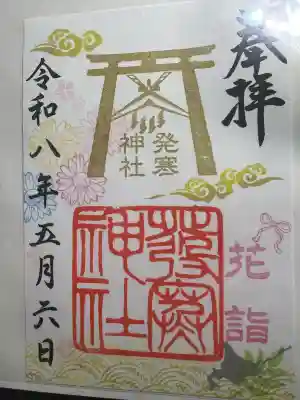 奉拝
発寒
神社
発寒
神社
花詣
令和八年五月六日